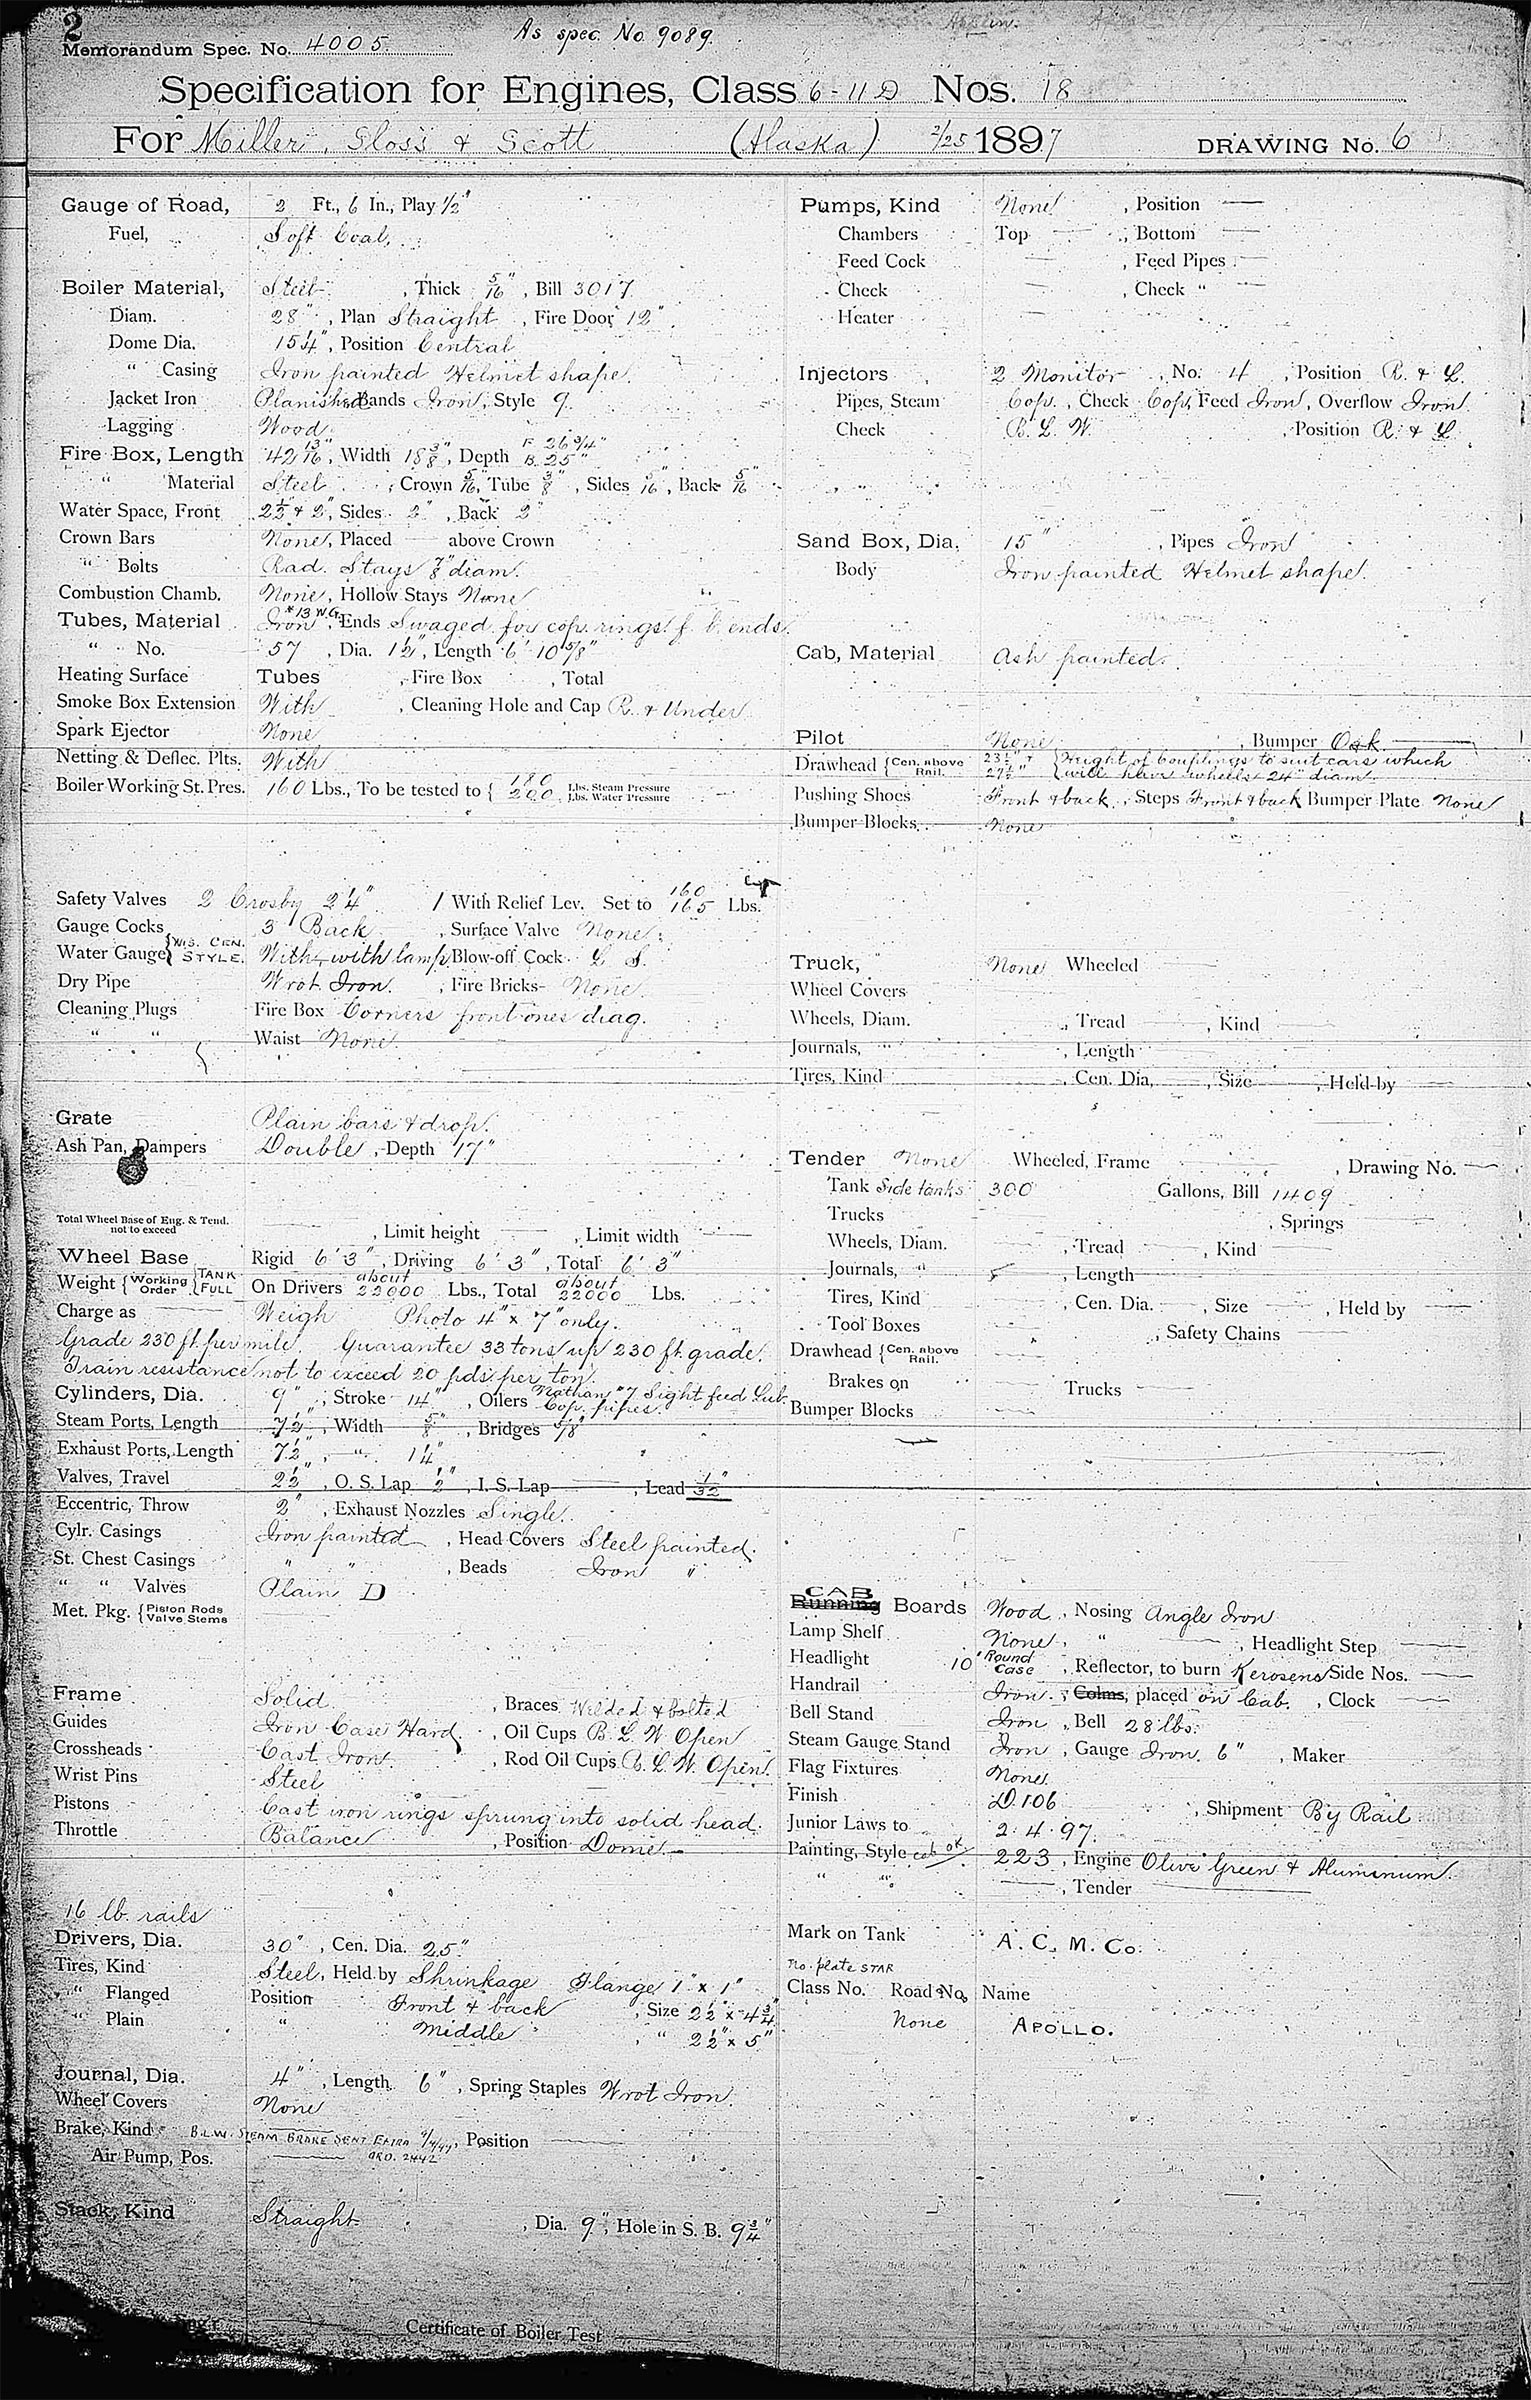 2
Memorandum Spec. No. 4005 As spec. No 9089.
Specification for Engines, Class 6-11 D Nos. 18
For Miller, Sloss & Scott (Alaska) 2/25 1897 DRAWING No. 6
Gauge of Road, 2 Ft., 6 In., Play 1/2"
Fuel, Soft Coal.
Boiler Material, Steel , Thick 5/16" , Bill 3017
Diam. 28" , Plan Straight , Fire Door, 12"
Dome Dia. 15 1/4", Position Central
" Casing Iron painted Helmet shape.
Jacket Iron Planished Bands Iron, Style 9.
Lagging Wood
Fire Box, Length 42 13/16", Width 15 3/8", Depth F. 26 3/4" B. 25"
" Material Steel , Crown 5/16", Tube 3/8" , Sides 5/16", Back 5/16"
Water Space, Front 2 1/2" & 2", Sides 2" , Back 2"
Crown Bars None, Placed — above Crown
" Bolts Rad. Stays 7/8" diam.
Combustion Chamb. None, Hollow Stays None
Tubes, Material Iron #13 W.G., Ends Swaged for cop. rings f. b. ends.
" No. 57 , Dia. 1 1/2", Length 6' 10 5/8"
Heating Surface Tubes , Fire Box , Total
Smoke Box Extension With , Cleaning Hole and Cap R. & Under
Spark Ejector None
Netting & Deflec. Plts. With
Boiler Working St. Pres. 160 Lbs., To be tested to { 180 Lbs. Steam Pressure
200 Lbs. Water Pressure
Safety Valves 2 Crosby 2 1/4" 1 With Relief Lev. Set to 160 165 Lbs.
Gauge Cocks 3 Back , Surface Valve None
Water Gauge { WIS. CEN. STYLE. With, with lamp, Blow-off Cock L S.
Dry Pipe Wrot Iron. , Fire Bricks None.
Cleaning Plugs Fire Box Corners front ones diag.
" " Waist None.
Grate Plain bars & drop.
Ash Pan, Dampers Double , Depth 17"
Total Wheel Base of Eng. & Tend. not to exceed — , Limit height — , Limit width —
Wheel Base Rigid 6' 3" , Driving 6' 3" , Total 6' 3"
Weight { Working Order } { TANK FULL On Drivers about 22000 Lbs., Total about 22000 Lbs.
Charge as — Weigh Photo 4" x 7" only.
Grade 230 ft. per mile. Guarantee 33 tons up 230 ft. grade.
Train resistance not to exceed 20 pds. per ton.
Cylinders, Dia. 9" , Stroke 14" , Oilers Nathan #7 Sight feed Lub. Cop. pipes.
Steam Ports, Length 7 1/2" , Width 5/8" , Bridges 5/8"
Exhaust Ports, Length 7 1/2" , " 1 1/4"
Valves, Travel 2 1/2" , O. S. Lap 1/2" , I. S. Lap — , Lead 1/32"
Eccentric, Throw 2" , Exhaust Nozzles Single.
Cylr. Casings Iron painted , Head Covers Steel painted.
St. Chest Casings " " , Beads Iron "
" " Valves Plain D
Met. Pkg. { Piston Rods Valve Stems —
Frame Solid , Braces Welded & bolted
Guides Iron Case Hard. , Oil Cups B. L. W. Open
Crossheads Cast Iron. , Rod Oil Cups B. L. W. Open.
Wrist Pins Steel
Pistons Cast iron rings sprung into solid head.
Throttle Balance , Position Dome.
16 lb. rails
Drivers, Dia. 30" , Cen. Dia. 25"
Tires, Kind Steel, Held by Shrinkage Flange 1" x 1"
" Flanged Position Front & back , Size 2 1/2" x 4 3/4"
" Plain " Middle , " 2 1/2" x 5"
Journal, Dia. 4" , Length 6" , Spring Staples Wrot Iron.
Wheel Covers None
Brake, Kind B.L.W. STEAM BRAKE SENT EXTRA , Position —
Air Pump, Pos. — ORD. 2442
Stack, Kind Straight , Dia. 9", Hole in S. B. 9 3/4"
Certificate of Boiler Test
Pumps, Kind None , Position —
Chambers Top — , Bottom —
Feed Cock — , Feed Pipes —
Check — , Check " —
Heater
Injectors 2 Monitor , No. 4 , Position R. & L.
Pipes, Steam Cop. , Check Cop, Feed Iron, Overflow Iron.
Check B. L. W. , Position R. & L.
" "
Sand Box, Dia. 15" , Pipes Iron
Body Iron painted Helmet shape.
Cab, Material Ash painted.
Pilot None , Bumper Oak.
Drawhead { Cen. above Rail. 23 1/2" & 27 1/2" { Height of Couplings to suit cars which will have wheels 24" diam.
Pushing Shoes Front & back, Steps Front & back Bumper Plate None
Bumper Blocks None
Truck, None Wheeled —
Wheel Covers
Wheels, Diam. , Tread — , Kind —
Journals, " , Length
Tires, Kind , Cen. Dia. — , Size — , Held by —
Tender None Wheeled, Frame — , Drawing No. —
Tank Side tanks 300 Gallons, Bill 1409
Trucks — , Springs —
Wheels, Diam. — , Tread — , Kind —
Journals, " , Length —
Tires, Kind — , Cen. Dia. — , Size — , Held by —
Tool Boxes — , Safety Chains —
Drawhead { Cen. above Rail. —
Brakes on — Trucks —
Bumper Blocks —
CAB
Running Boards Wood , Nosing Angle Iron
Lamp Shelf None, " — , Headlight Step —
Headlight 10" Round Case , Reflector, to burn Kerosene Side Nos. —
Handrail Iron , Colms, placed on Cab. , Clock —
Bell Stand Iron , Bell 28 lbs.
Steam Gauge Stand Iron , Gauge Iron 6" , Maker
Flag Fixtures None.
Finish D.106 , Shipment By Rail
Junior Laws to 2. 4. 97.
Painting, Style cab ok 223 , Engine Olive Green & Aluminum.
" " — , Tender —
Mark on Tank A. C. M. Co.
no. plate STAR
Class No. Road No. Name
None APOLLO.